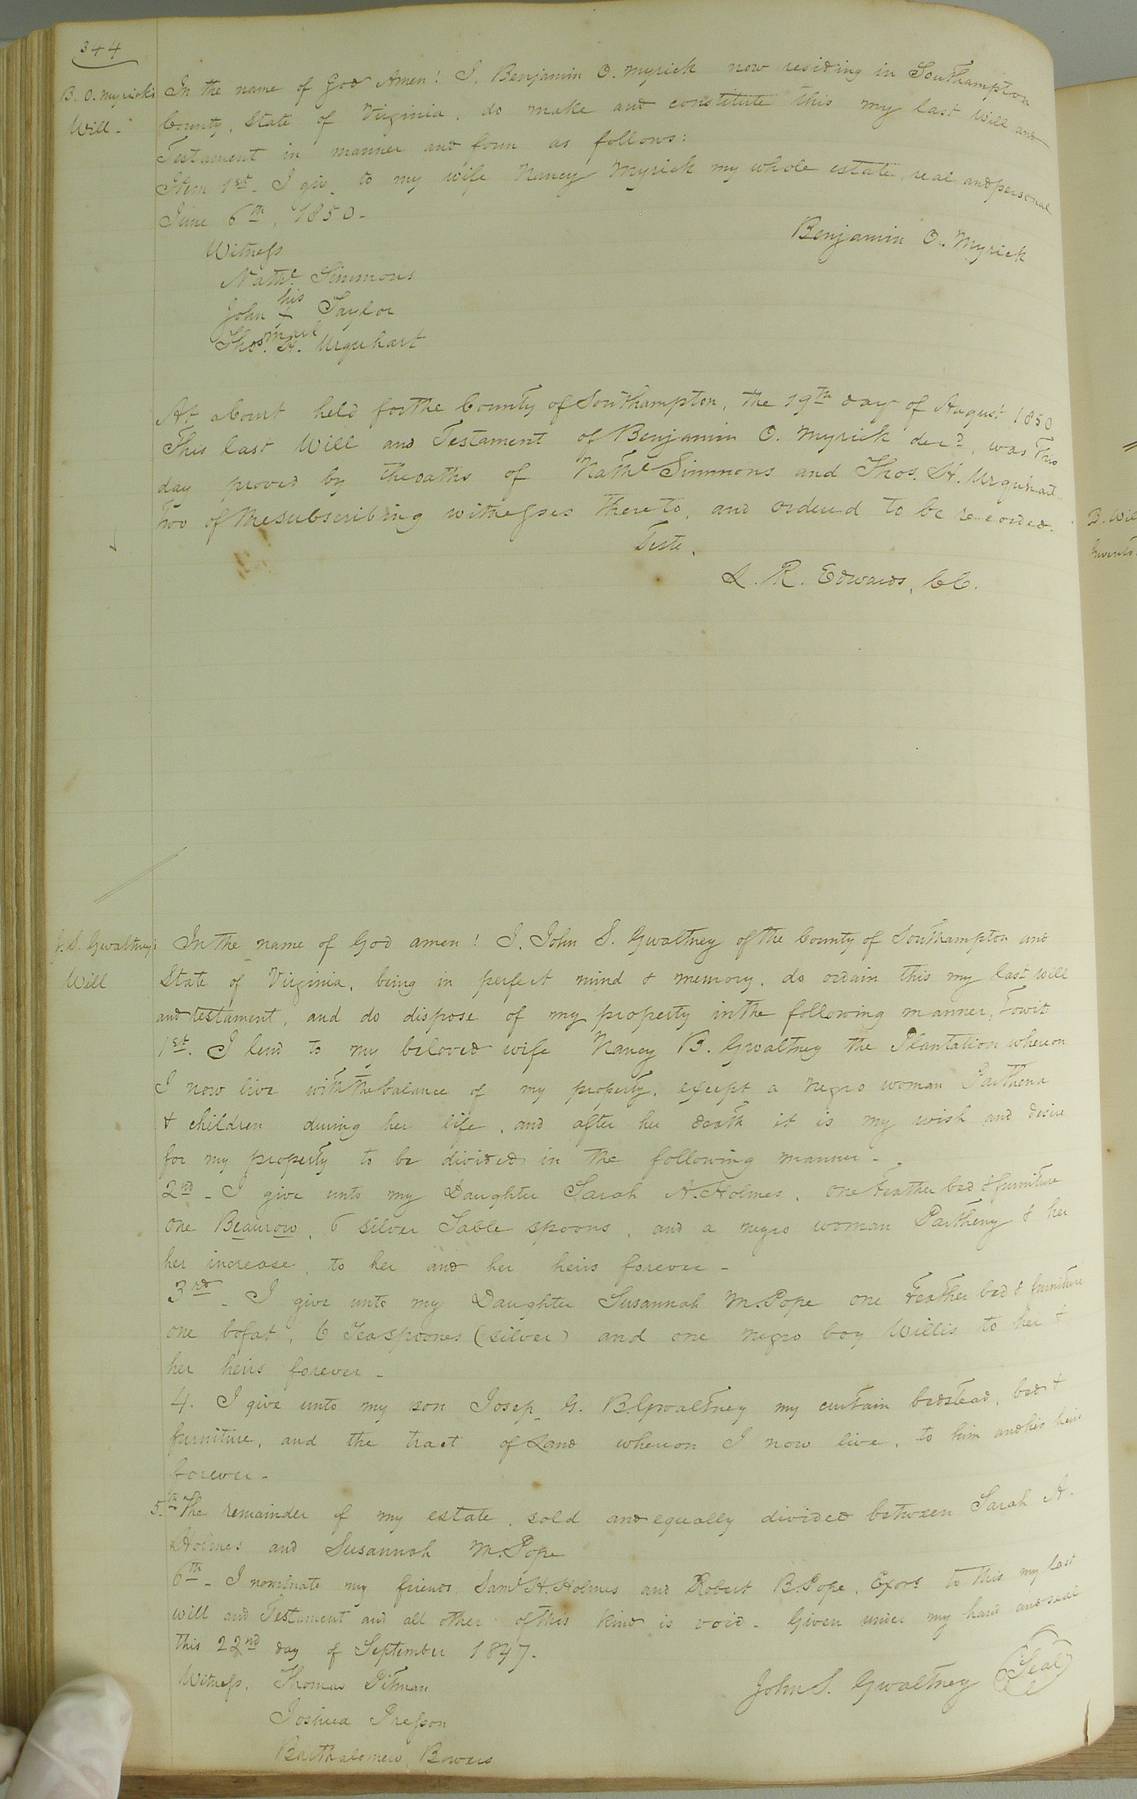 344
B. O. Myrick's
Will -
In the name of God Amen! I, Benjamin O. Myrick now residing in Southampton
County, State of Virginia, do make and constitute this my last Will and
Testament in manner and form as follows:
Item 1st. I give to my wife Nancy Myrick my whole estate, real and personal
June 6th, 1850 -
Benjamin O. Myrick
Witness
Nathl Simmons
his
John + Taylor
mark
Thos. H. Urquhart
At a Court held for the County of Southampton, the 19th day of August 1850
This last Will and Testament of Benjamin O. Myrick decd, was this
day proved by the oaths of Nathl Simmons and Thos. H. Urquhart
two of the subscribing witnesses thereto, and ordered to be recorded.
Teste,
L. R. Edwards, CC.
B. Wil
J. S. Gwaltney's
Will
In the name of God amen! I, John S. Gwaltney of the County of Southampton and
State of Virginia, being in perfect mind & memory, do ordain this my last will
and testament, and do dispose of my property in the following manner, Towit
1st. I lend to my beloved wife Nancy B. Gwaltney the Plantation whereon
I now live with the balance of my property, except a negro woman Parthena
& children during her life, and after her death it is my wish and desire
for my property to be divided in the following manner -
2nd - I give unto my Daughter Sarah A. Holmes, one Feather bed & furniture
one Beaurow, 6 silver Table spoons, and a negro woman Partheny & her
her increase, to her and her heirs forever -
3rd - I give unto my Daughter Susannah M. Pope one Feather bed & furniture
one bofat, 6 Teaspoones (silver) and one negro boy Willis to her &
her heirs forever -
4. I give unto my son Josep G. B. Gwaltney my curtain bedstead, bed &
furniture, and the tract of Land whereon I now live, to him and his heirs
forever -
5.th The remainder of my estate, sold and equally divided between Sarah A.
Holmes and Susannah M. Pope
6th - I nominate my friends Saml H. Holmes and Robert B. Pope, Exors to this my last
will and Testament and all other of this kind is void - Given under my hand and seal
this 22nd day of September 1847.
John S. Gwaltney (Seal)
Witness, Thomas Pitman
Joshua Presson
Barthalemew Bowers